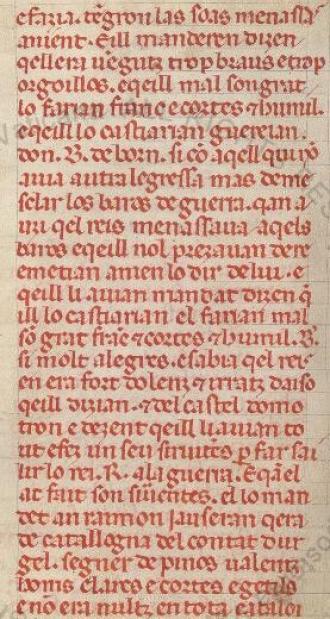 efaria. tengron las soas menassas
anient. Eill manderen dizen
qellera uengutz trop braus e trop
orgoillos. e qeill mal son grat
lo farian franc e cortes ⁊ humil.
e qeill lo castiarian guereian.
don. B. de born. si cō aqell qui nō
auia autra legressa mas de me
sclar los baros de guerra. qan a
uzi qel reis menassaua aqels
baros e qeill nol prezauan de re
e metian a nien lo dir de lui. e
qeill li auian mandat dizen q̄
ill lo castiarian el farian mal
sō grat frāc ⁊ cortes ⁊ humil. B.
si molt alegres. e sabia qel reis
en era fort dolenz ⁊ irratz daiso
qeill dizian. ⁊ del castel domo
tron e dezent qeill li auian to
ut e fez un seu siruētes ꝑ far sai
lir lo rei. R. a la guerra. E qan el
ac fait son siruentes. el lo man
det an raimon iauseran qera
de catallogna del contat dur
gel. segner de pinos ualentz
homs e larcs e cortes e gentils
e nō era nultz en tota cataloi